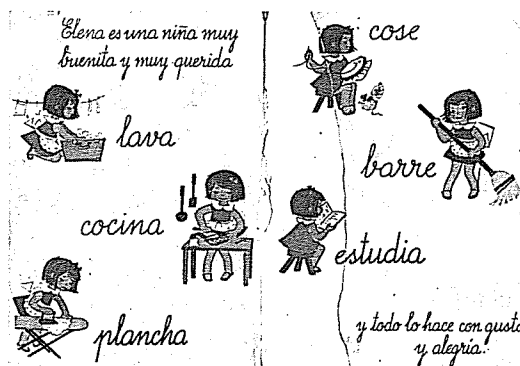 Elena es una niña muy
buenita y muy querida
lava
cocina
plancha
cose
barre
estudia
y todo lo hace con gusto
y alegría.